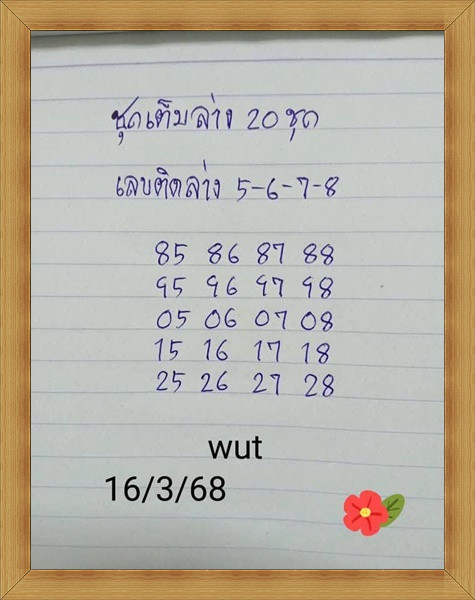 ชุดเต็มล่าง 20 ชุด
เลขติดล่าง 5-6-7-8
85 86 87 88
95 96 97 98
05 06 07 08
15 16 17 18
25 26 27 28
wut
16/3/68